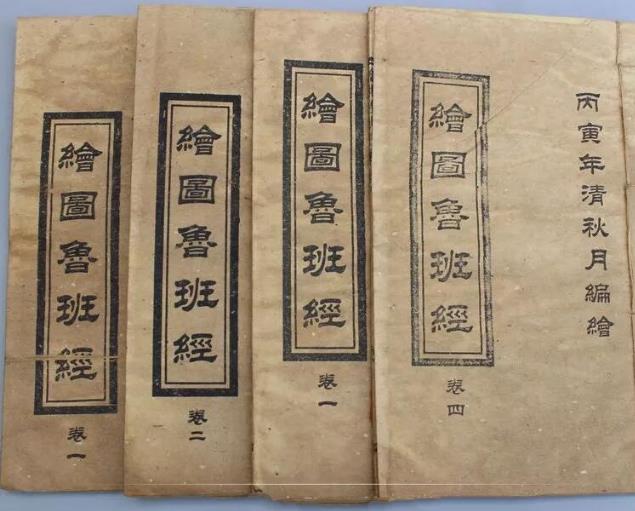 繪圖魯班經
卷一
繪圖魯班經
卷二
繪圖魯班經
卷一
繪圖魯班經
卷四
丙寅年清秋月編繪